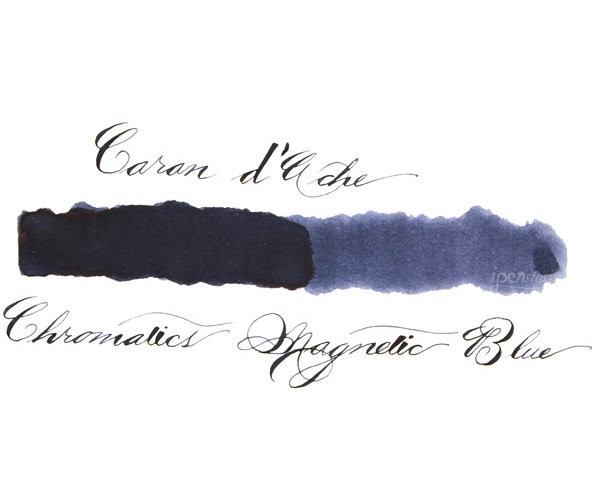 Caran d'Ache
Chromatics Magnetic Blue